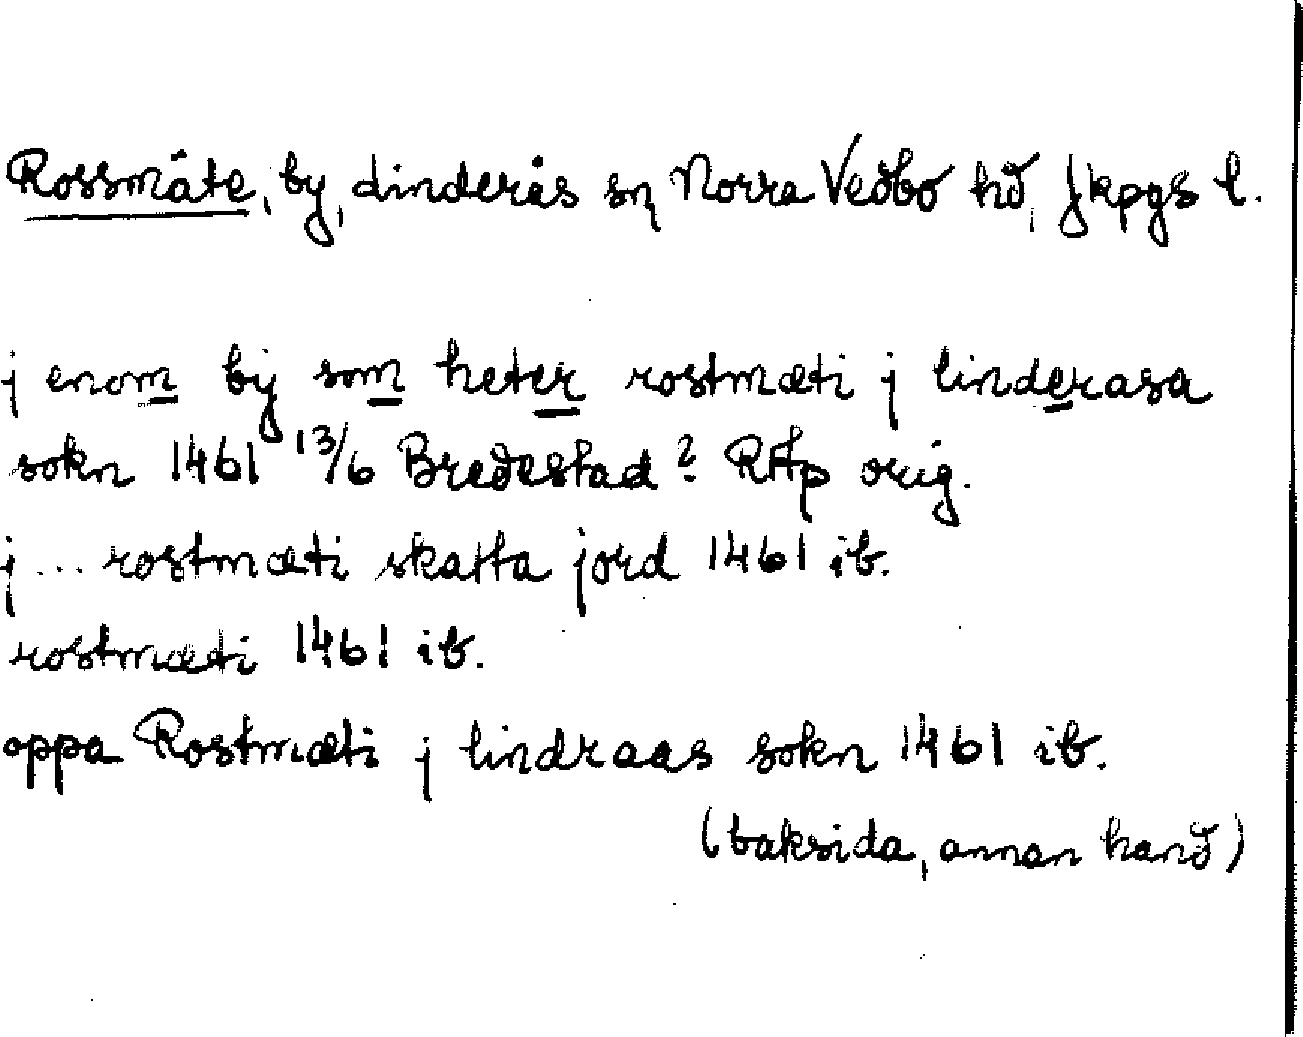 Rossmåte, by, Linderås sn, Norra Vedbo hd, Jkpgs l.
j enom by som heter rostmæti j linderasa
sokn 1461 13/6 Bredestad? RAp orig.
j ... rostmæti skatta jord 1461 ib.
rostmæti 1461 ib.
oppa Rostmæti j lindraas sokn 1461 ib.
(baksida, annan hand)